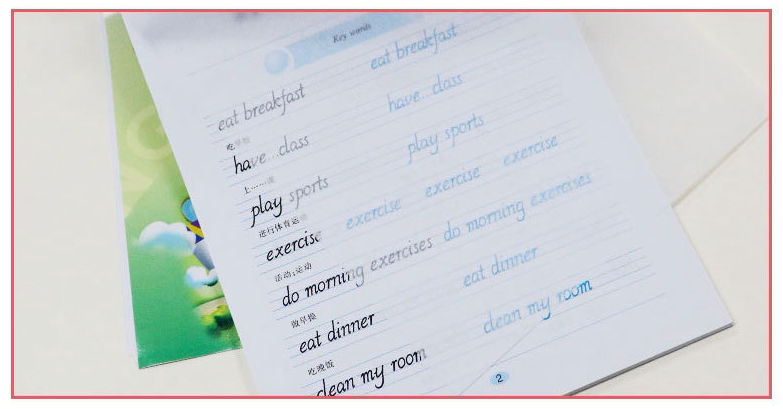 Key words
eat breakfast eat breakfast
吃早饭
have...class have...class
上……课
play sports play sports
进行体育运动
exercise exercise exercise exercise
活动;运动
do morning exercises do morning exercises
做早操
eat dinner eat dinner
吃晚饭
clean my room clean my room
2